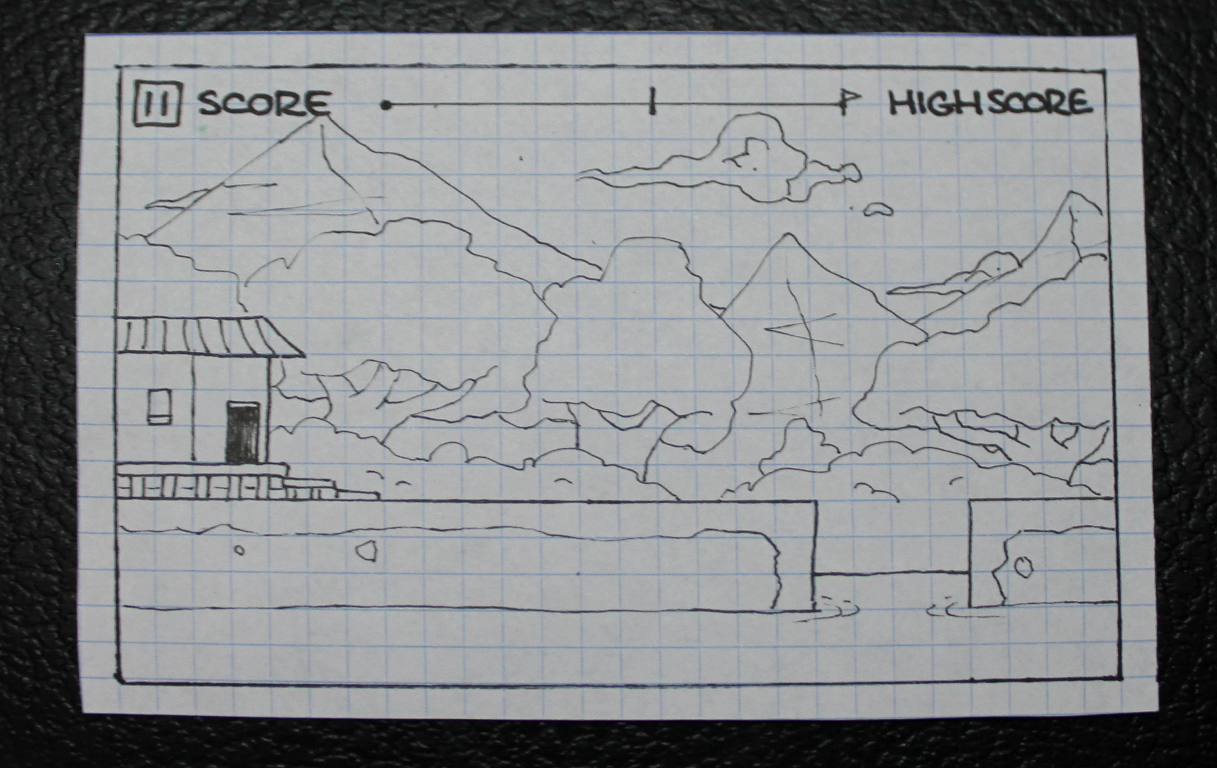 SCORE HIGHSCORE